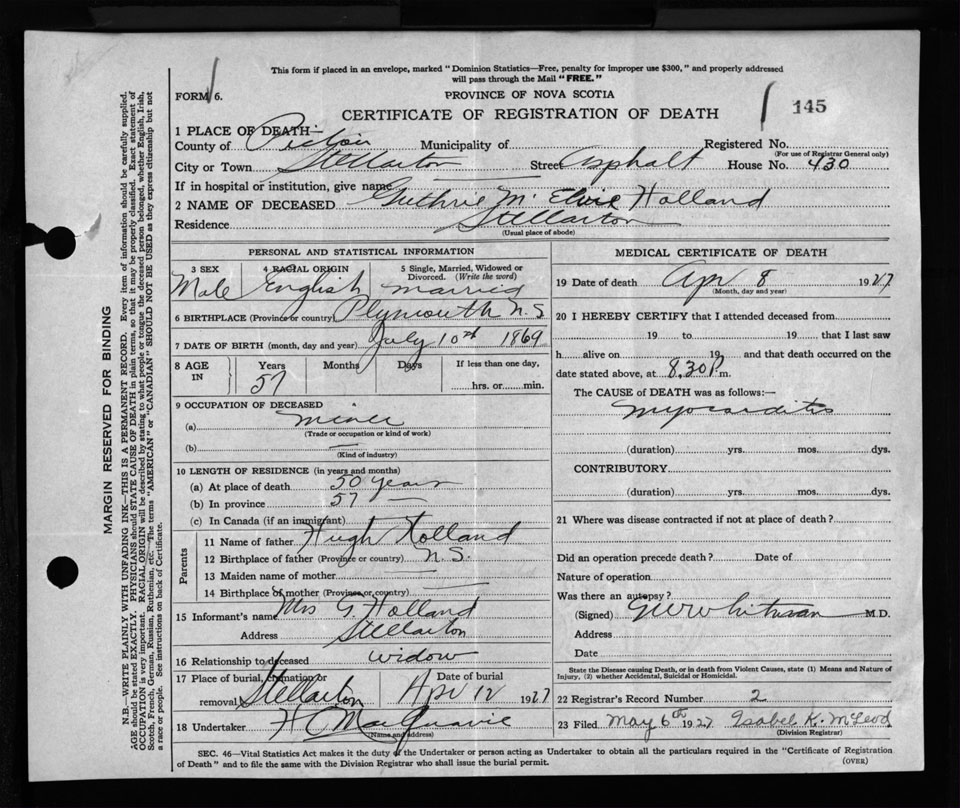 This form if placed in an envelope, marked "Dominion Statistics—Free, penalty for improper use $300," and properly addressed
will pass through the Mail "FREE."
FORM 6.
PROVINCE OF NOVA SCOTIA
CERTIFICATE OF REGISTRATION OF DEATH
145
1 PLACE OF DEATH—
County of Pictou Municipality of Registered No.
(For use of Registrar General only)
City or Town Stellarton Street Asphalt House No. 430
If in hospital or institution, give name
2 NAME OF DECEASED Guthrie Mc Elvie Holland
Residence Stellarton
(Usual place of abode)
PERSONAL AND STATISTICAL INFORMATION
3 SEX 4 RACIAL ORIGIN 5 Single, Married, Widowed or Divorced. (Write the word)
Male English married
6 BIRTHPLACE (Province or country) Plymouth N.S
7 DATE OF BIRTH (month, day and year) July 10th 1869
8 AGE IN Years Months Days If less than one day,
57 hrs. or min.
9 OCCUPATION OF DECEASED
(a) miner
(Trade or occupation or kind of work)
(b) —
(Kind of industry)
10 LENGTH OF RESIDENCE (in years and months)
(a) At place of death 50 years
(b) In province 57 —
(c) In Canada (if an immigrant)
Parents
11 Name of father Hugh Holland
12 Birthplace of father (Province or country) N.S.
13 Maiden name of mother —
14 Birthplace of mother (Province or country) —
15 Informant's name Mrs G. Holland
Address Stellarton
16 Relationship to deceased widow
17 Place of burial, cremation or removal Stellarton Date of burial Apr 12 1927
18 Undertaker H C MacQuarrie
(Name and address)
MEDICAL CERTIFICATE OF DEATH
19 Date of death Apr 8 1927
(Month, day and year)
20 I HEREBY CERTIFY that I attended deceased from
19 to 19 that I last saw
h alive on 19 and that death occurred on
date stated above, at 8.30 P m.
The CAUSE of DEATH was as follows:—
myocarditis
(duration) yrs. mos. dys.
CONTRIBUTORY
(duration) yrs. mos. dys.
21 Where was disease contracted if not at place of death?
Did an operation precede death? Date of
Nature of operation
Was there an autopsy?
(Signed) Whitman M.D.
Address
Date
State the Disease causing Death, or in death from Violent Causes, state (1) Means and Nature of
Injury, (2) whether Accidental, Suicidal or Homicidal.
22 Registrar's Record Number 2
23 Filed May 6th 1927 Isabel K. McLeod
(Division Registrar)
SEC. 46—Vital Statistics Act makes it the duty of the Undertaker or person acting as Undertaker to obtain all the particulars required in the "Certificate of Registration
of Death" and to file the same with the Division Registrar who shall issue the burial permit.
(OVER)
MARGIN RESERVED FOR BINDING
N.B.—WRITE PLAINLY WITH UNFADING INK—THIS IS A PERMANENT RECORD. Every item of information should be carefully supplied.
AGE should be stated EXACTLY. PHYSICIANS should STATE CAUSE OF DEATH in plain terms, so that it may be properly classified. Exact statement of
OCCUPATION is very important. RACIAL ORIGIN will be described by stating to what people or tongue the deceased person belonged, whether English, Irish,
Scotch, French, German, Russian, Ruthenian, etc. The terms "AMERICAN" or "CANADIAN" SHOULD NOT BE USED as they express citizenship but not
a race or people. See instructions on back of Certificate.